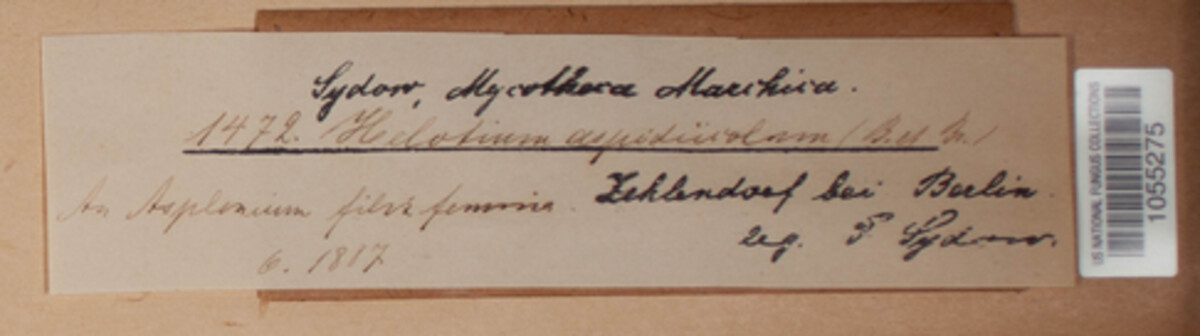 Sydow, Mycotheca Marchica.
1472. Helotium aspidiicolum (B. et Br.)
An Asplenium filix femina. Zehlendorf bei Berlin.
6. 1887 leg. P. Sydow.
US NATIONAL FUNGUS COLLECTIONS
1055275